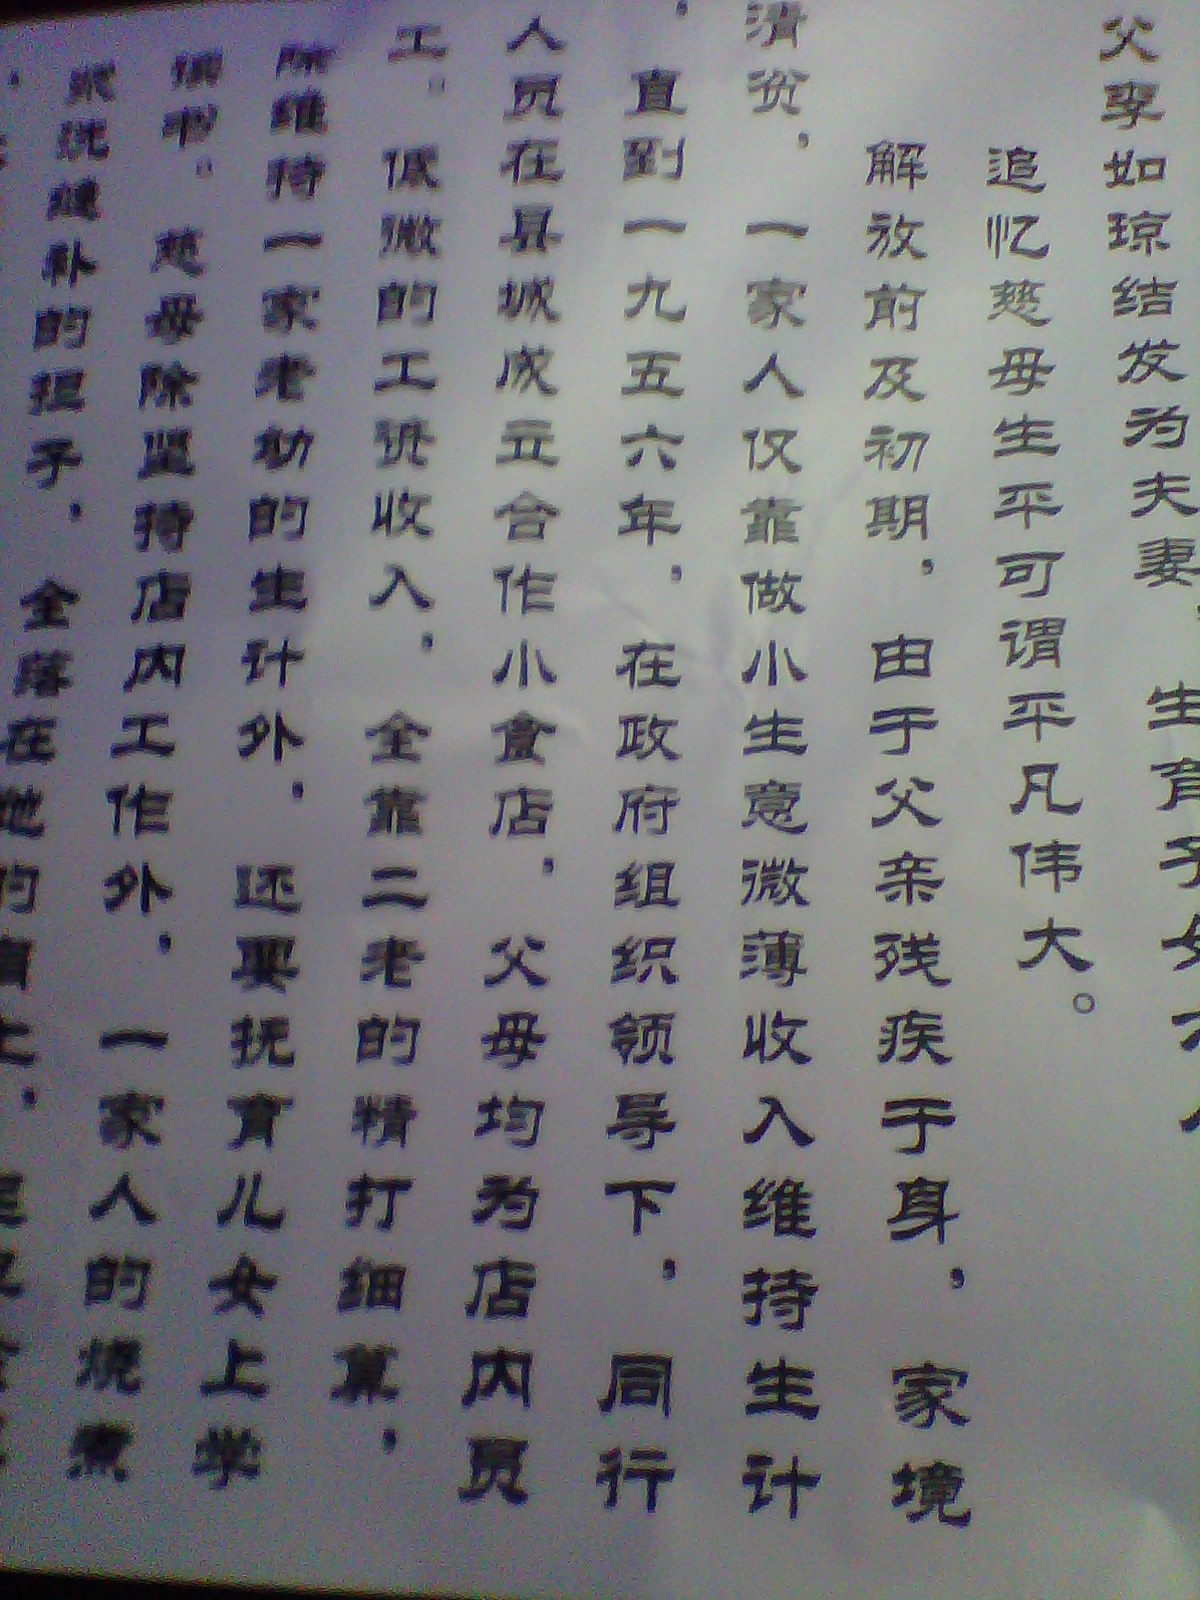 父李如琼结发为夫妻，生育子女
追忆慈母生平可谓平凡伟大。
解放前及初期，由于父亲残疾于身，家境
清贫，一家人仅靠做小生意微薄收入维持生计
，直到一九五六年，在政府组织领导下，同行
人员在县城成立合作小食店，父母均为店内员
工。低微的工资收入，全靠二老的精打细算，
除维持一家老幼的生计外，还要抚育儿女上学
读书。慈母除坚持店内工作外，一家人的烧煮
浆洗缝补的担子，全落在她的肩上，